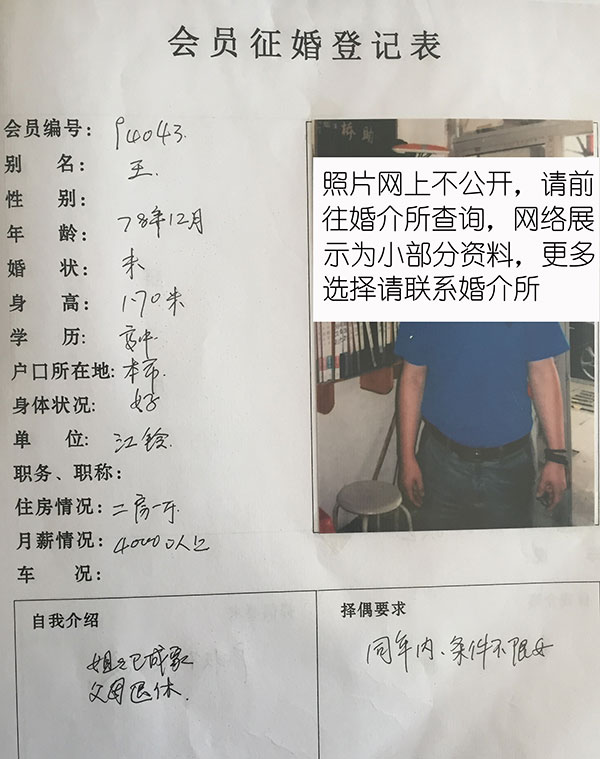 会员征婚登记表
会员编号：94043.
别 名：王.
性 别：
年 龄：78年12月
婚 状：未
身 高：1.70米
学 历：高中
户口所在地：本市.
身体状况：好
单 位：江铃.
职务、职称：
住房情况：二房一厅
月薪情况：4000以上
车 况：
照片网上不公开，请前
往婚介所查询，网络展
示为小部分资料，更多
选择请联系婚介所
自我介绍
姐姐已成家
父母退休.
择偶要求
同年内、条件不限